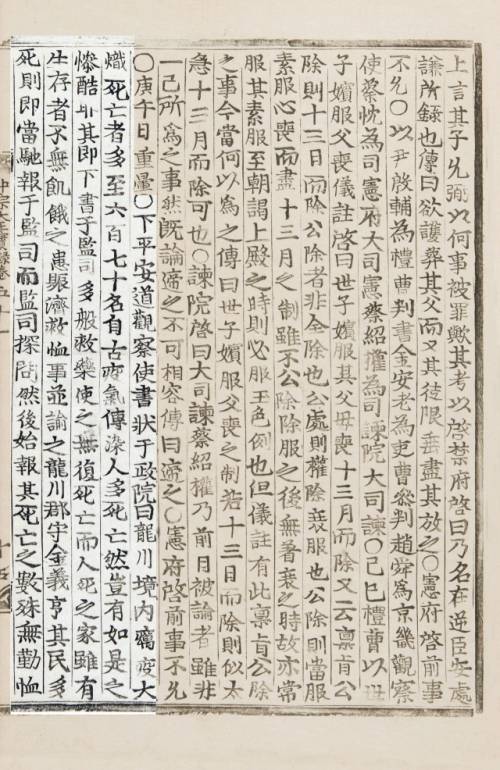 上言其子允弼以何事被罪歟其考以啓禁府啓曰乃名在逆臣安處
謙所錄也傳曰欲護葬其父而又其徒限垂盡其放之○憲府啓前事
不允○以尹殷輔為禮曹判書金安老為吏曹參判趙舜為京畿觀察
使蔡忱為司憲府大司憲蔡紹權為司諫院大司諫○己巳禮曹以世
子嬪服父喪儀註啓曰世子嬪服其父母喪十三月而除又云稟旨公
除則十三日而除公除者非全除也公處則權除衰服也公除則當服
素服心喪而盡十三月之制雖不公除除服之後無着衰之時故亦常
服其素服至朝謁上殿之時則必服玉色例也但儀註有此稟旨公除
之事今當何以為之傳曰世子嬪服父喪之制若十三日而除則似太
急十三月而除可也○諫院啓曰大司諫蔡紹權乃前日被論者雖非
一己所為之事然既論遞之不可相容傳曰遞之○憲府啓前事不允
○庚午日重暈○下平安道觀察使書狀于政院曰龍川境內癘疫大
熾死亡者多至六百七十名自古疫氣傳染人多死亡然豈有如是之
慘酷耶其即下書于監司多般救藥使之無復死亡而人死之家雖有
生存者不無飢餓之患賑濟救恤事並論之龍川郡守金義亨其民多
死則即當馳報于監司而監司採問然後始報其死亡之數殊無勤恤